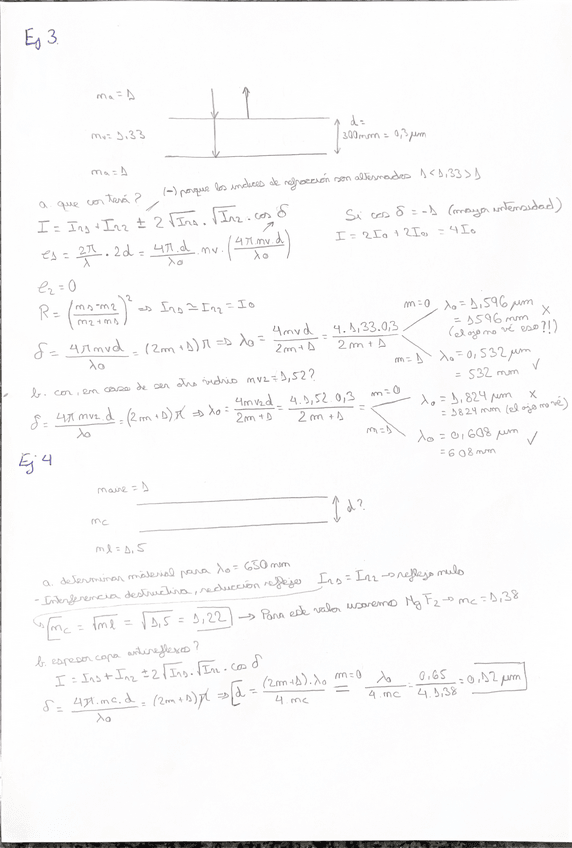 Ej 3.
na = 1
nv = 1,33
na = 1
d =
300nm = 0,3 μm
a. que cor terá? (-) porque los indices de refracción son alternados 1 < 1,33 > 1
I = Ir1 + Ir2 ± 2 √Ir1 · √Ir2 · cos δ
Si cos δ = -1 (mayor intensidad)
I = 2I0 + 2I0 = 4I0
e1 = 2π/λ · 2d = 4π·d/λ0 · nv · (4π·nv·d/λ0)
e2 = 0
R = ((n1-n2)/(n2+n1))² ⇒ Ir1 ≃ Ir2 = I0
δ = 4π nv d/λ0 = (2m+1)π ⇒ λ0 = 4nvd/(2m+1) = 4·1,33·0,3/(2m+1)
m=0 λ0 = 1,596 μm
= 1596 nm x
(el ojo no vé eso?!)
m=1 λ0 = 0,532 μm
= 532 nm ✓
b. cor, en caso de ser otro vidrio nv2 = 1,52?
δ = 4π nv2·d/λ0 = (2m+1)π ⇒ λ0 = 4nv2d/(2m+1) = 4·1,52·0,3/(2m+1) =
m=0 λ0 = 1,824 μm x
= 1824 nm (el ojo no vé)
m=1 λ0 = 0,608 μm
= 608 nm ✓
Ej 4
naire = 1
nc
d?
nl = 1,5
a. determinar material para λ0 = 650 nm
- Interferencia destructiva, reducción reflejos Ir1 = Ir2 → reflejo nulo
nc = √nl = √1,5 = 1,22 → Para este valor usaremos MgF2 → nc = 1,38
b. espesor capa antireflexo?
I = Ir1 + Ir2 ± 2 √Ir1 · √Ir2 · cos δ
δ = 4π·nc·d/λ0 = (2m+1)π ⇒ d = (2m+1)·λ0/4·nc m=0 = λ0/4·nc = 0,65/4·1,38 = 0,12 μm